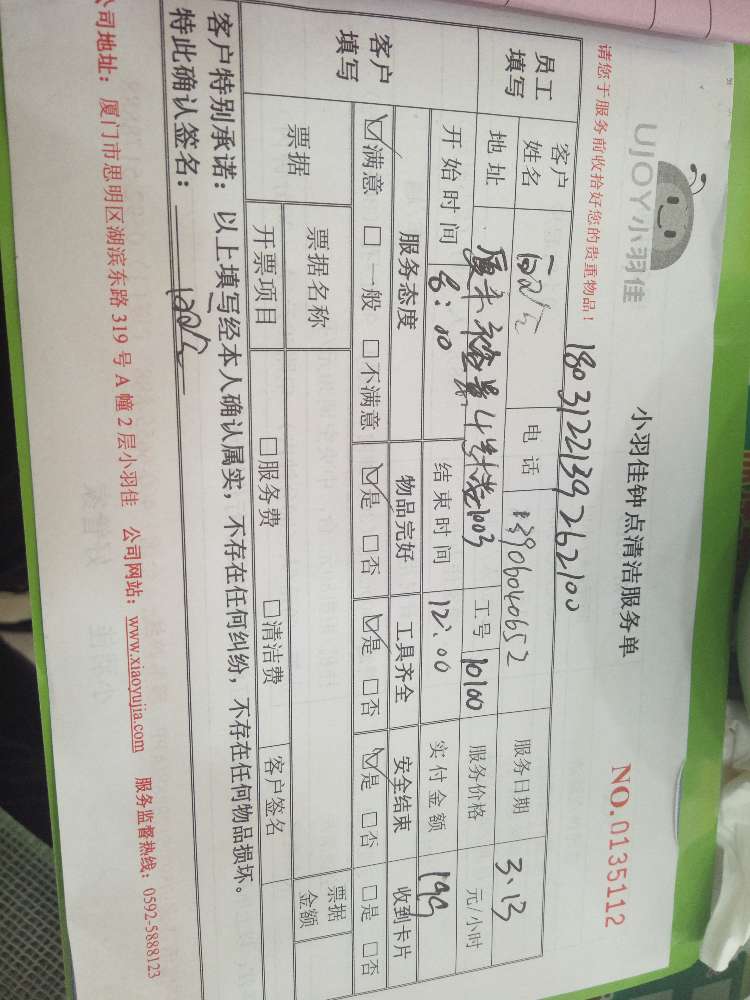 UJOY小羽佳
小羽佳钟点清洁服务单
NO.0135112
请您于服务前收拾好您的贵重物品！
1803122139262100
员工填写
客户姓名
电话
13906040652
服务日期
3.13
地址
4号楼1003
工号
10100
服务价格
元/小时
开始时间
8:10
结束时间
12:00
实付金额
199
客户填写
服务态度
物品完好
工具齐全
安全结束
收到卡片
☑满意 □一般 □不满意
☑是 □否
☑是 □否
☑是 □否
□是 □否
票据
票据名称
票据金额
开票项目
□服务费
□清洁费
客户签名
客户特别承诺：以上填写经本人确认属实，不存在任何纠纷，不存在任何物品损坏。
特此确认签名：
公司地址：厦门市思明区湖滨东路319号A幢2层小羽佳 公司网站：www.xiaoyujia.com 服务监督热线：0592-5888123